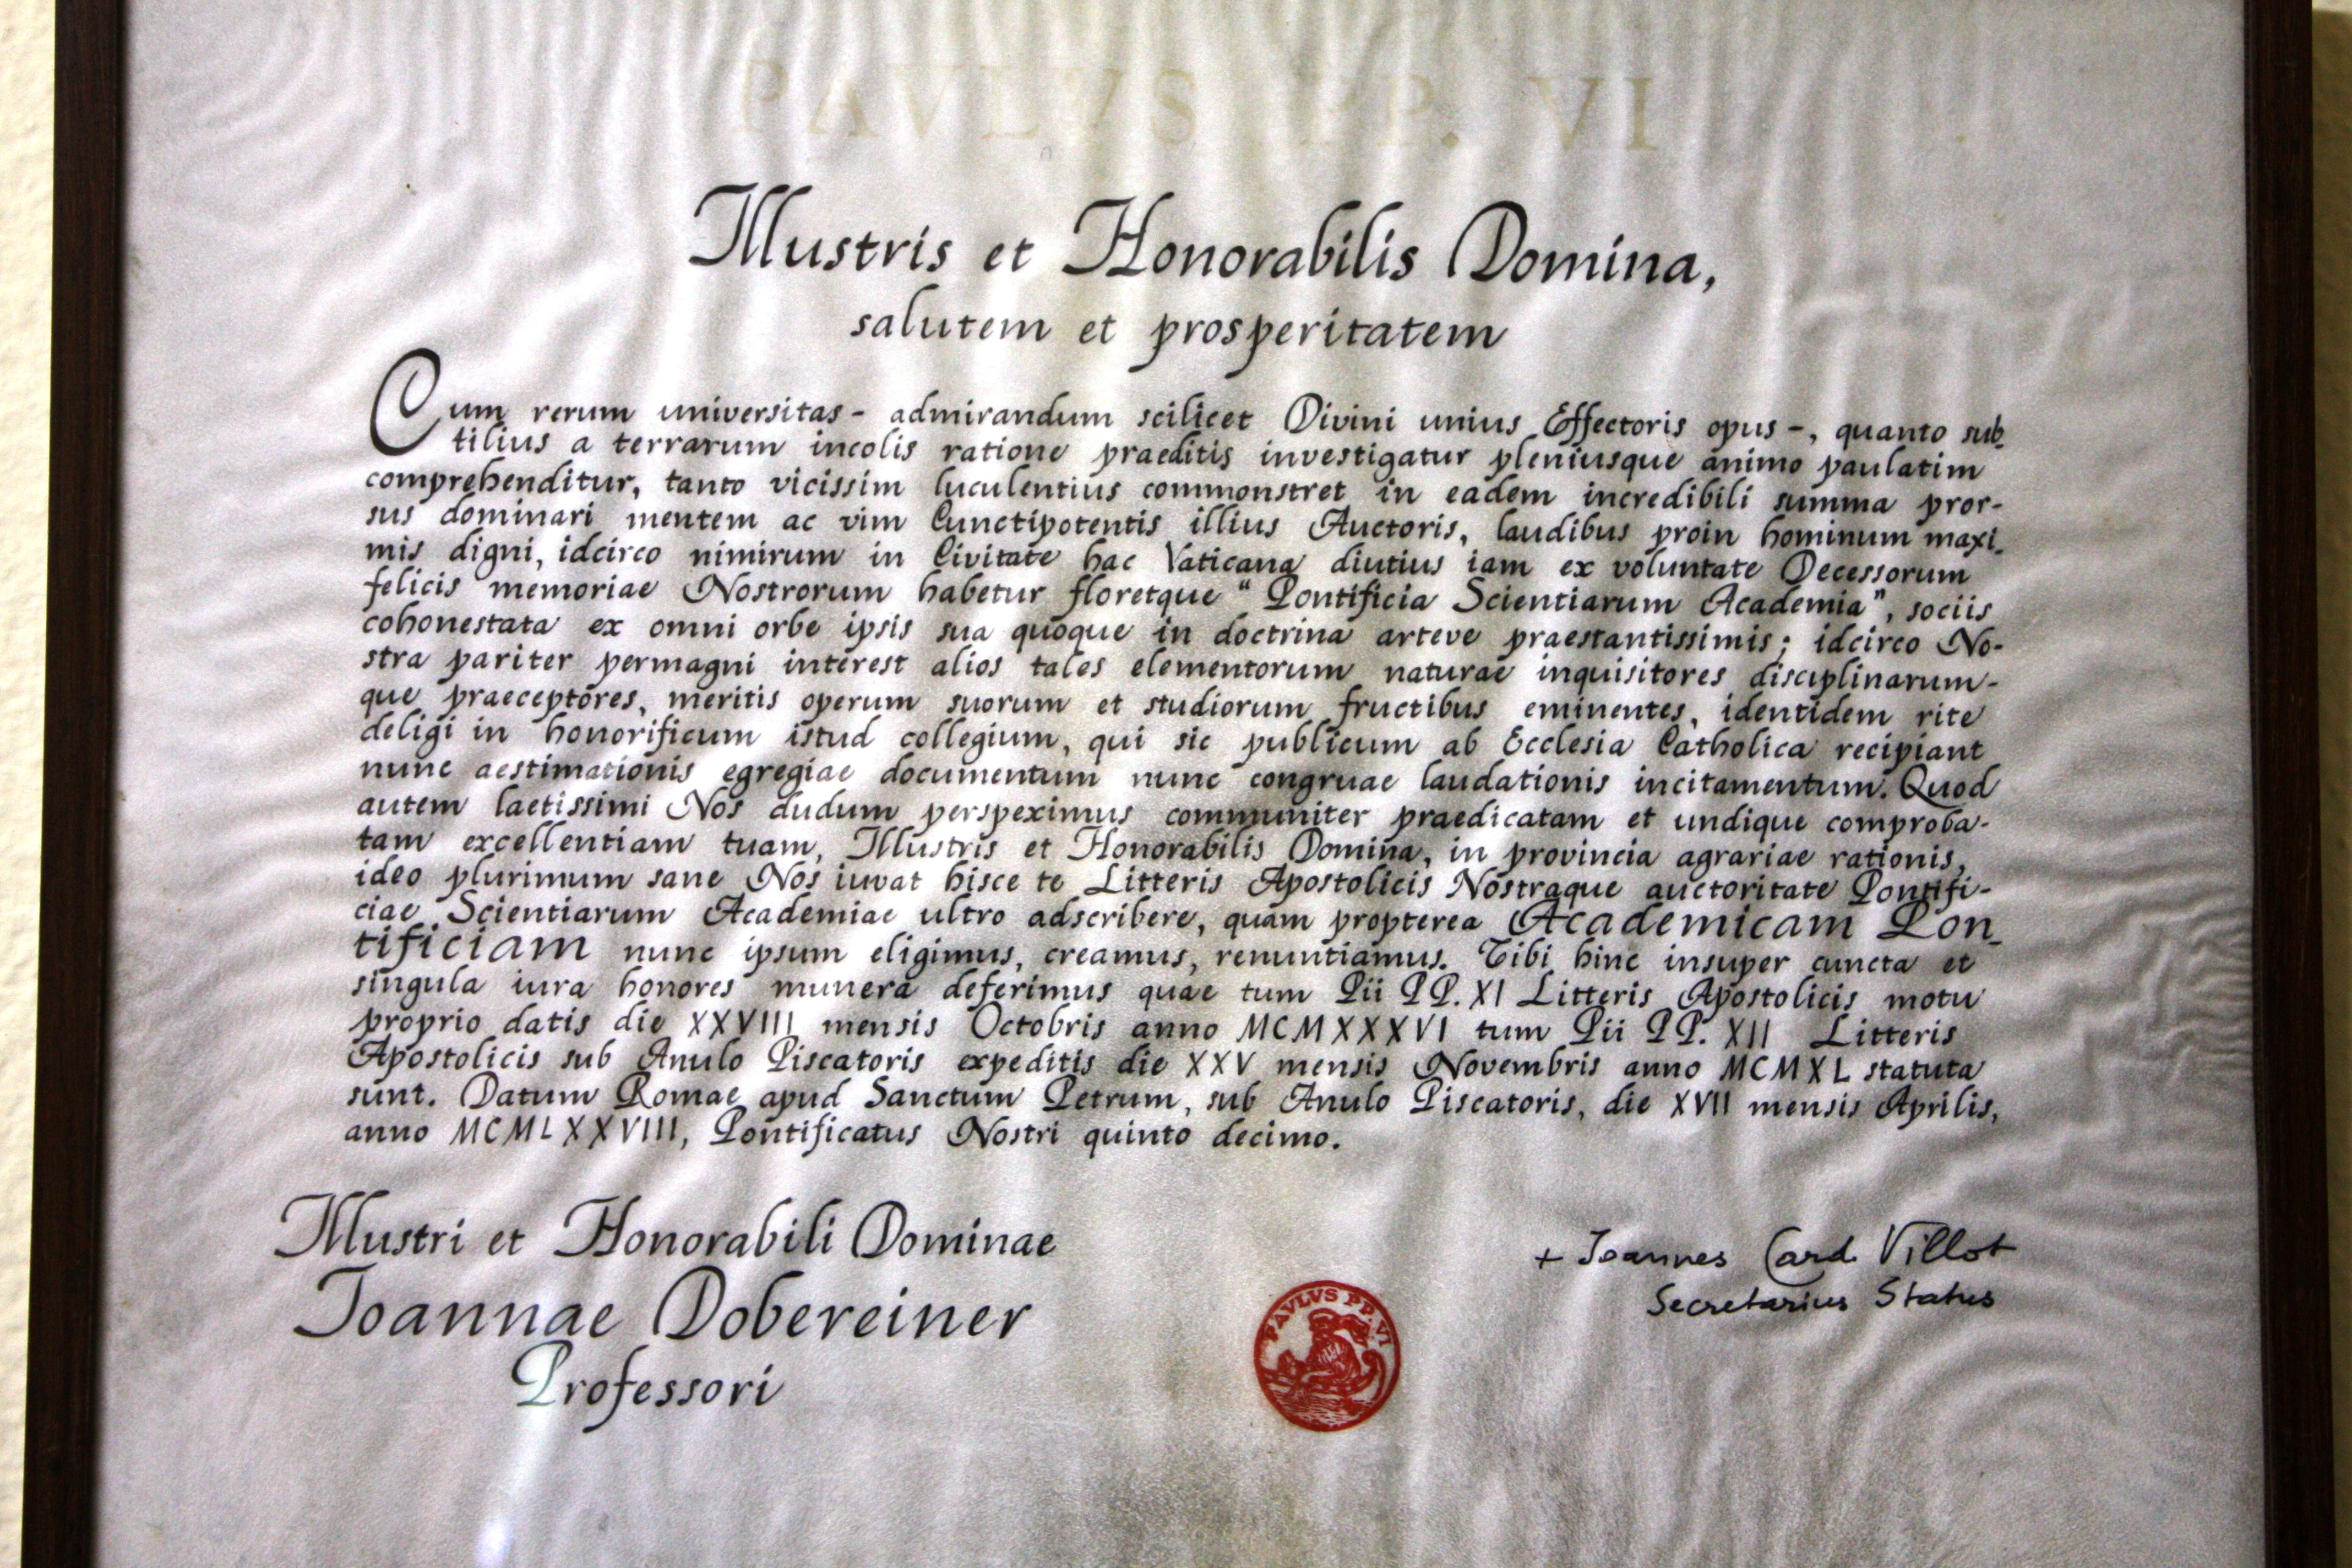 PAVLVS PP. VI
Illustris et Honorabilis Domina,
salutem et prosperitatem
Cum rerum universitas - admirandum scilicet Divini unius Effectoris opus -, quanto sub-
tilius a terrarum incolis ratione praeditis investigatur pleniusque animo paulatim
comprehenditur, tanto vicissim luculentius commonstret in eadem incredibili summa pror-
sus dominari mentem ac vim Cunctipotentis illius Auctoris, laudibus proin hominum maxi-
mis digni, idcirco nimirum in Civitate hac Vaticana diutius iam ex voluntate Decessorum
felicis memoriae Nostrorum habetur floretque "Pontificia Scientiarum Academia", sociis
cohonestata ex omni orbe ipsis sua quoque in doctrina arteve praestantissimis; idcirco No-
stra pariter permagni interest alios tales elementorum naturae inquisitores disciplinarum-
que praeceptores, meritis operum suorum et studiorum fructibus eminentes, identidem rite
deligi in honorificum istud collegium, qui sic publicum ab Ecclesia Catholica recipiant
nunc aestimationis egregiae documentum nunc congruae laudationis incitamentum. Quod
autem laetissimi Nos dudum perspeximus communiter praedicatam et undique comproba-
tam excellentiam tuam, Illustris et Honorabilis Domina, in provincia agrariae rationis,
ideo plurimum sane Nos iuvat hisce te Litteris Apostolicis Nostraque auctoritate Pontifi-
ciae Scientiarum Academiae ultro adscribere, quam propterea Academicam Pon-
tificiam nunc ipsum eligimus, creamus, renuntiamus. Tibi hinc insuper cuncta et
singula iura honores munera deferimus quae tum Pii PP. XI Litteris Apostolicis motu
proprio datis die XXVIII mensis Octobris anno MCMXXXVI tum Pii PP. XII Litteris
Apostolicis sub Anulo Piscatoris expeditis die XXV mensis Novembris anno MCMXL statuta
sunt. Datum Romae apud Sanctum Petrum, sub Anulo Piscatoris, die XVII mensis Aprilis,
anno MCMLXXVIII, Pontificatus Nostri quinto decimo.
Illustri et Honorabili Dominae
Joannae Dobereiner
Professori
+ Joannes Card. Villot
Secretarius Status
PAVLVS PP. VI